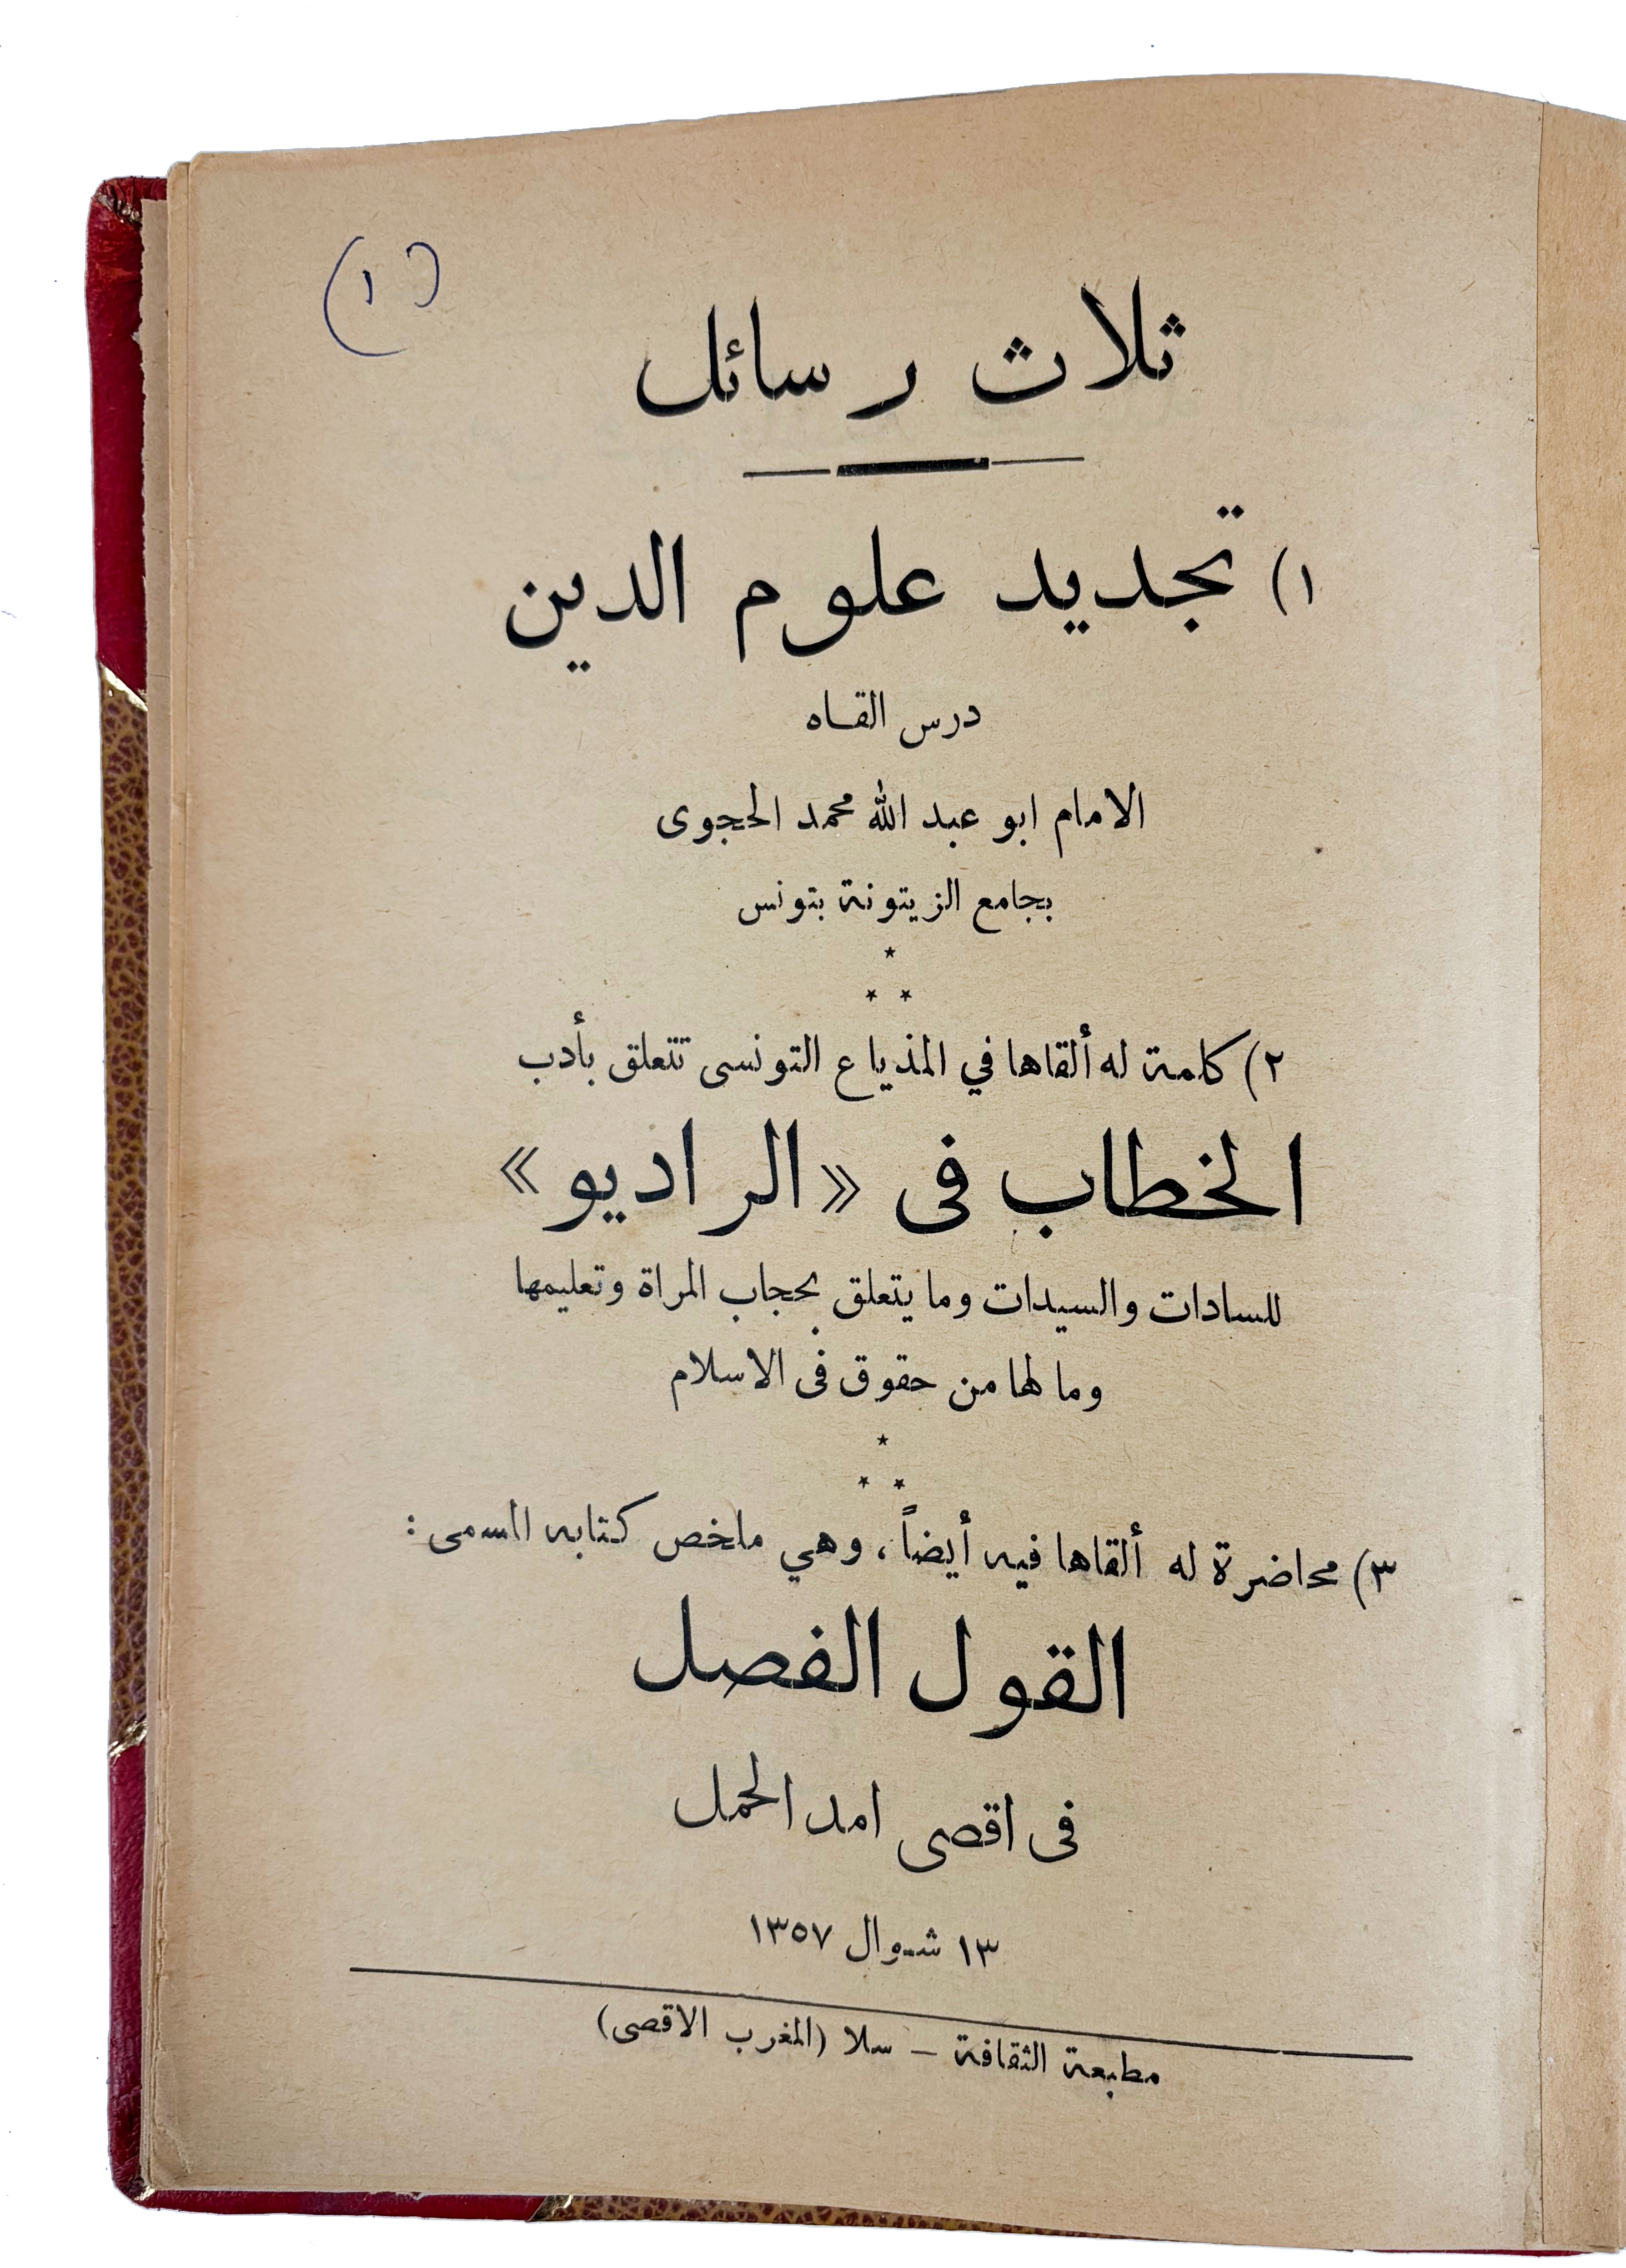 (١)
ثلاث رسائل
١) تجديد علوم الدين
درس القاه
الامام ابو عبد الله محمد الحجوى
بجامع الزيتونة بتونس
*
* *
٢) كلمة له ألقاها في المذياع التونسى تتعلق بأدب
الخطاب فى «الراديو»
للسادات والسيدات وما يتعلق بحجاب المراة وتعليمها
وما لها من حقوق فى الاسلام
*
* *
٣) محاضرة له ألقاها فيه أيضاً، وهي ملخص كتابه المسمى:
القول الفصل
فى اقصى امد الحمل
١٣ شوال ١٣٥٧
مطبعة الثقافة – سلا (المغرب الاقصى)